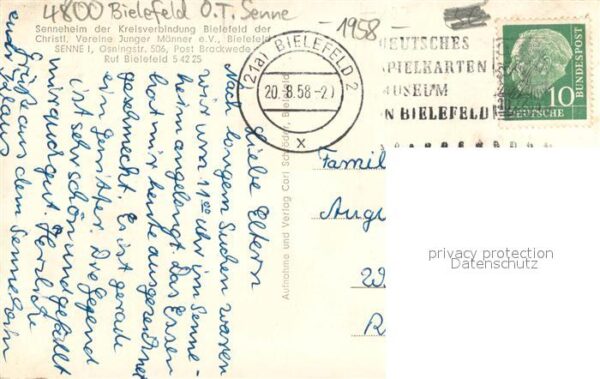 4800 Bielefeld O.T. Senne
-1958-
Senneheim der Kreisverbindung Bielefeld der
Christl. Vereine Junger Männer e.V., Bielefeld
SENNE I, Osningstr. 506, Post Brackwede
Ruf Bielefeld 5 42 25
(21a) BIELEFELD 2
20.8.58-20
x
DEUTSCHES
SPIELKARTEN
MUSEUM
IN BIELEFELD
10
DEUTSCHE
BUNDESPOST
Liebe Eltern
Nach langem Suchen waren
wir um 11 00 Uhr im Senne-
heim angelangt. Das Essen
hat mir heute ausgezeichnet
geschmeckt. Es ist gerade
ein Gewitter. Die Gegend
ist sehr schön und gefällt
mir auch gut. Herzliche
Grüße aus dem Senneheim
euer Klaus
Aufnahme und Verlag Carl Schröder, Bielefeld
Famil
Aug
W
R
privacy protection
Datenschutz